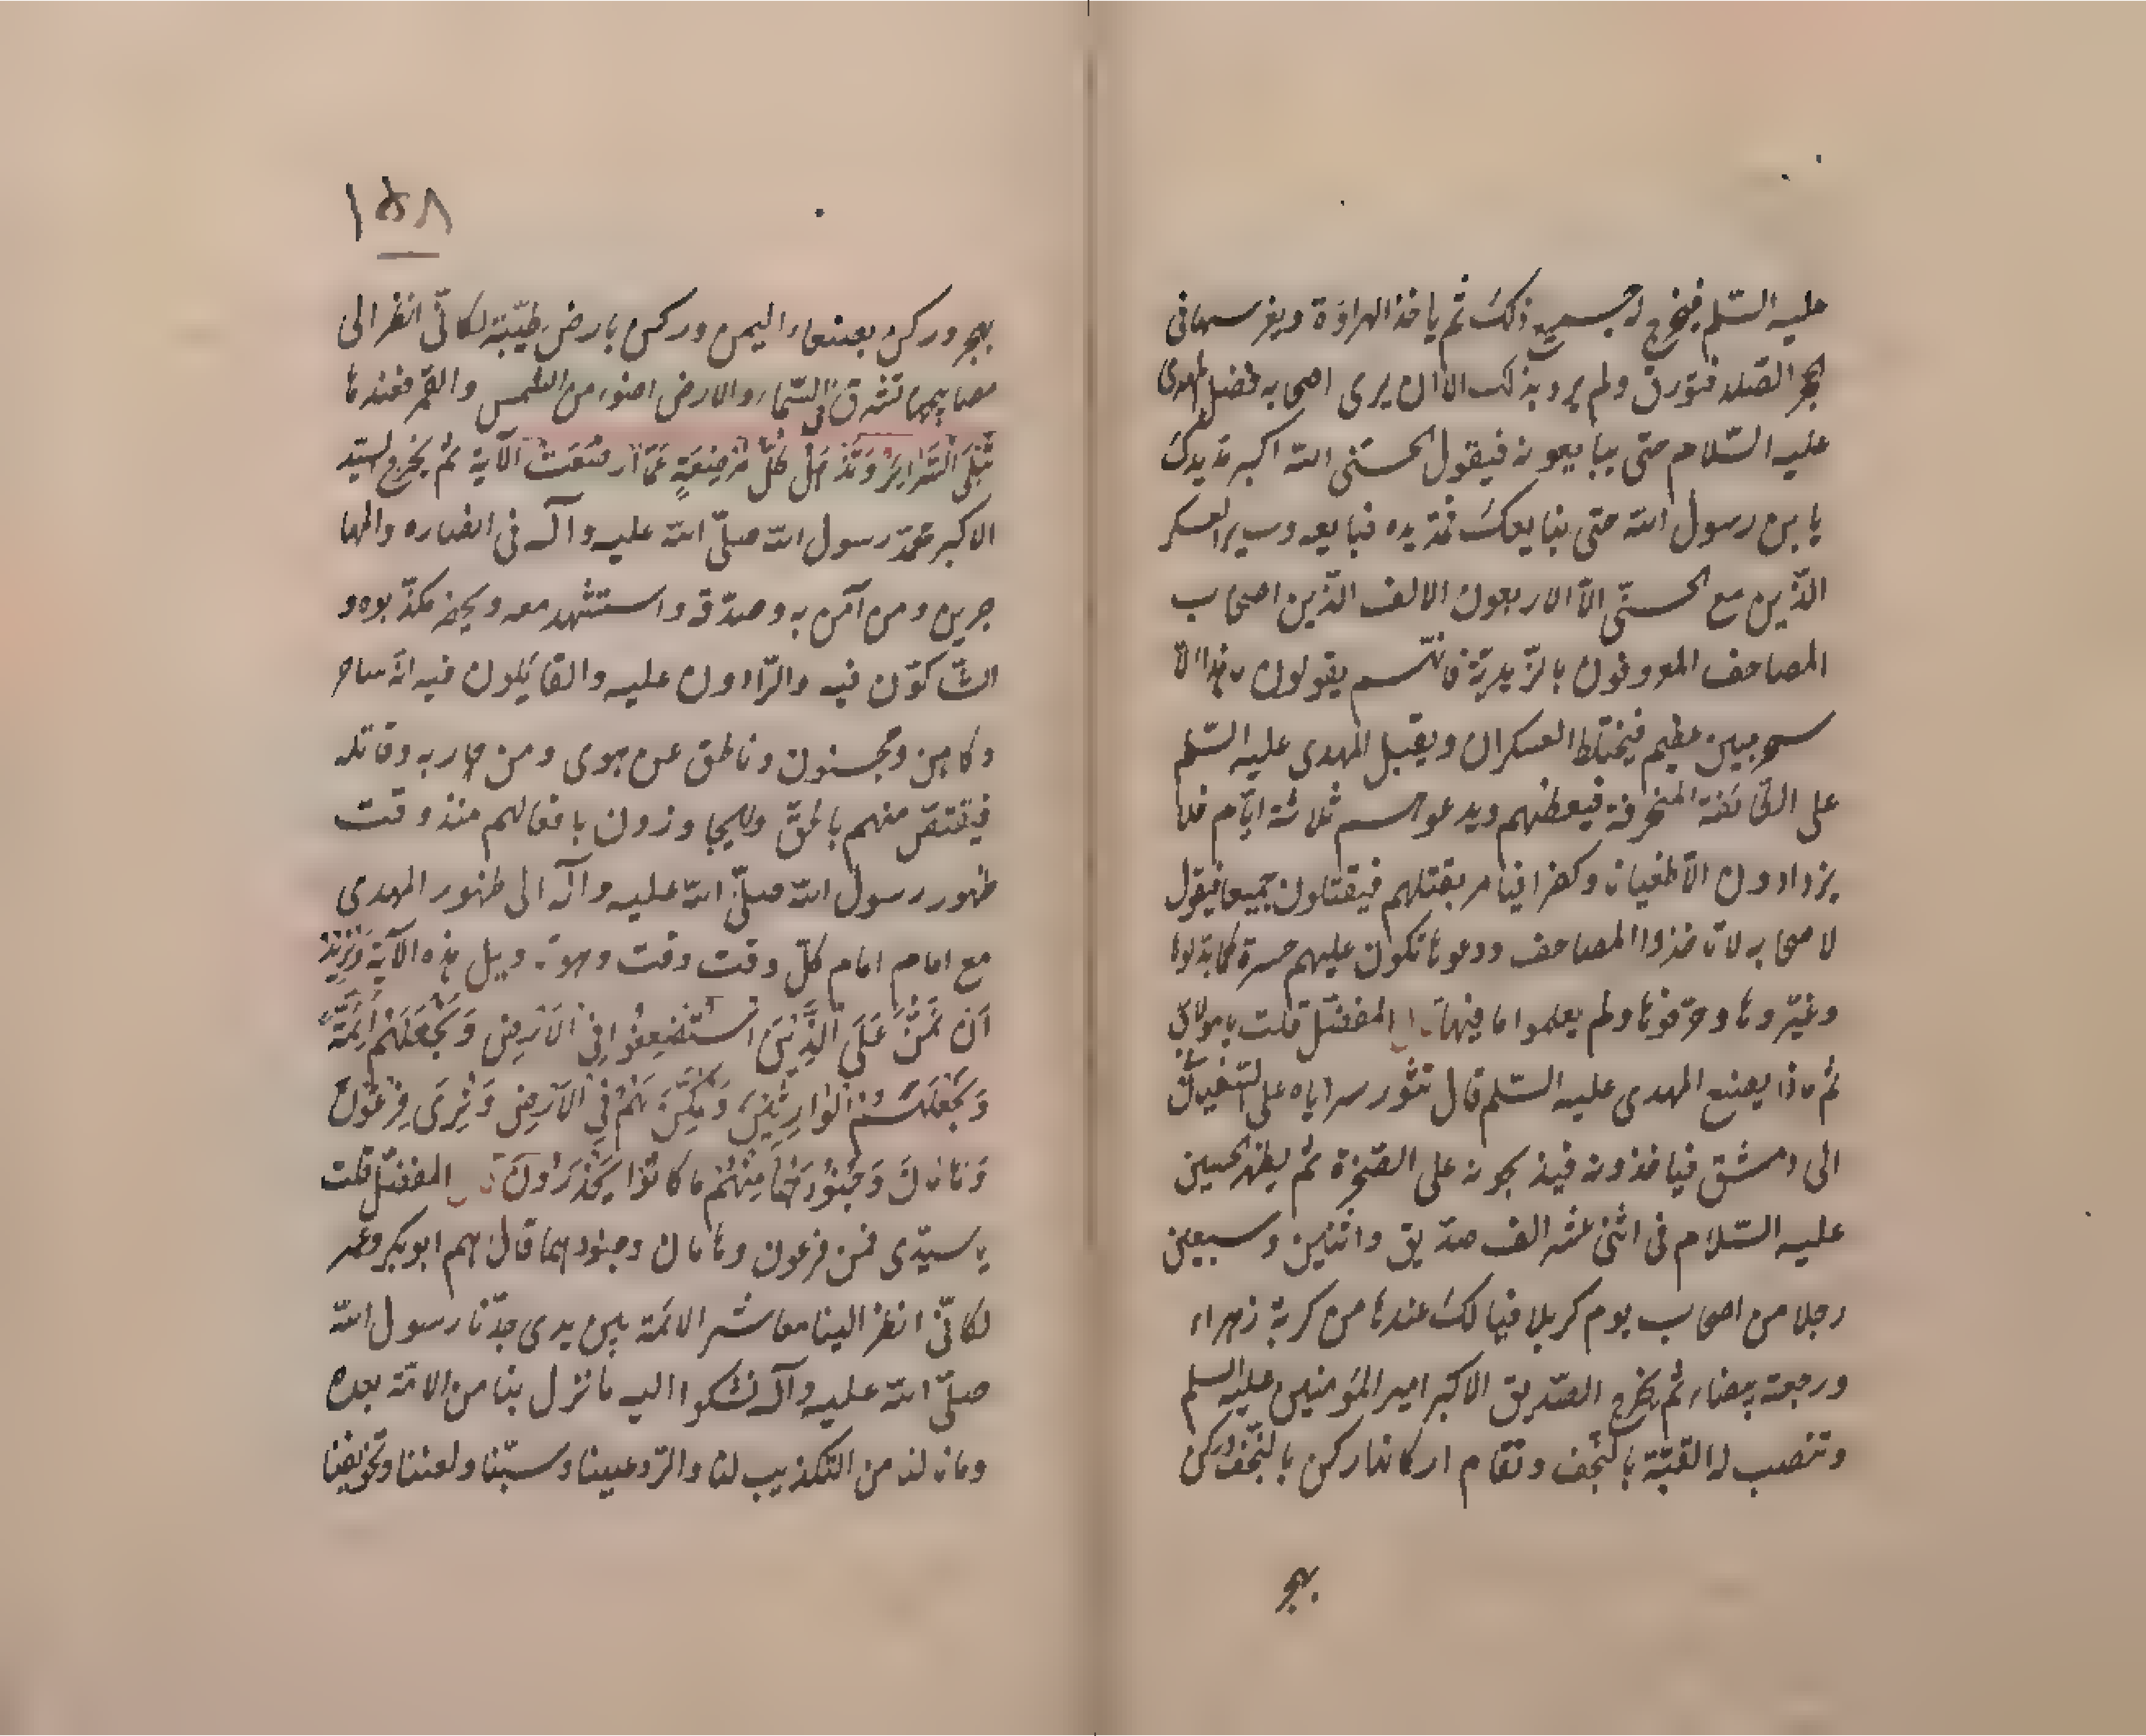 عليه السّلم فيخرج له جميع ذلك ثم ياخذ الهراوة ويغرسها فى
الحجر الصّلد فتورق ولم يرد بذلك الا ان يرى اصحابه فضل المهدى
عليه السّلام حتى يبايعونه فيقول الحسنى الله اكبر مدّ يدك
يابن رسول الله حتى نبايعك فمدّ يده فبايعه وساير العسكر
الذّين مع الحسنّى الاّ الاربعون الالف الذّين اصحاب
المصاحف المعروفون بالزّيديّة فانّهم يقولون ما هذا الاّ
سحر مبين عظيم فيختلط العسكران ويقبل المهدى عليه السّلم
على الطّائفة المنحرفة فيعظهم ويدعوهم ثلاثة ايّام فلا
يزدادون الاّ طغيانا وكفرا فيامر بقتلهم فيقتلون جميعا فيقول
لاصحابه لا تاخذوا المصاحف ودعوها تكون عليهم حسرة كما بدّلوها
وغيّروها وحرّفوها ولم يعلموا ما فيها قال المفضّل قلت يا مولاى
ثم ماذا يصنع المهدى عليه السّلم قال تثور سراياه على السّفيانى
الى دمشق فياخذونه فيذبحونه على الصّخرة ثم يظهر الحسين
عليه السّلام فى اثنى عشر الف صدّيق واثنين وسبعين
رجلا من اصحاب يوم كربلا فيا لك عندها من كربة زهراء
ورجعة بيضاء ثم يخرج الصّديق الاكبر امير المؤمنين عليه السلم
وتنصب له القبّة بالنّجف وتقام اركانها ركن بالنّجف وركن
بهجر
١٥٨
بهجر وركن بصنعاء اليمن وركن بارض طيّبة لكانّى انظر الى
مصابيحها تشرق فى السّماء والارض اضوء من الشمس والقمر فعندها
تُبْلَى السَّرائِرُ وَتَذْهَلُ كُلُّ مُرْضِعَةٍ عَمّا اَرْضَعَتْ الآية ثم يخرج السيّد
الاكبر محمّد رسول الله صلّى الله عليه وآله فى انصاره والمها
جرين ومن آمن به وصدّقه واستشهد معه ويحضر مكذّبوه و
الشّاكوّن فيه والرّادون عليه والقائلون فيه انّه ساحر
وكاهن ومجنون وناطق عن هوى ومن حاربه وقاتله
فيقتصّ منهم بالحقّ ويجاوزون بافعالهم منذ وقت
ظهور رسول الله صلّى الله عليه وآله الى ظهور المهدى
مع امام امام كلّ وقت وقت وهو تاويل هذه الآية وَنُرِيدُ
اَنْ نَمُنَّ عَلَى الَّذِينَ اسْتُضْعِفُوا فِى الاَرْضِ وَنَجْعَلَهُمْ اَئِمَّةً
وَنَجْعَلَهُمُ الْوارِثِينَ وَنُمَكِّنَ لَهُمْ فِى الاَرْضِ وَنُرِىَ فِرْعَوْنَ
وَهامانَ وَجُنُودَهُما مِنْهُمْ ما كانُوا يَحْذَرُونَ قال المفضّل قلت
يا سيّدى فمن فرعون وهامان وجنودهما قال هم ابو بكر وعمر
لكانّى انظر الينا معاشر الائمة بين يدى جدّنا رسول الله
صلّى الله عليه وآله نشكوا اليه ما نزل بنا من الامّة بعده
وما نالنا من التّكذيب لنا والرّد علينا وسبّنا ولعننا وتخويفنا